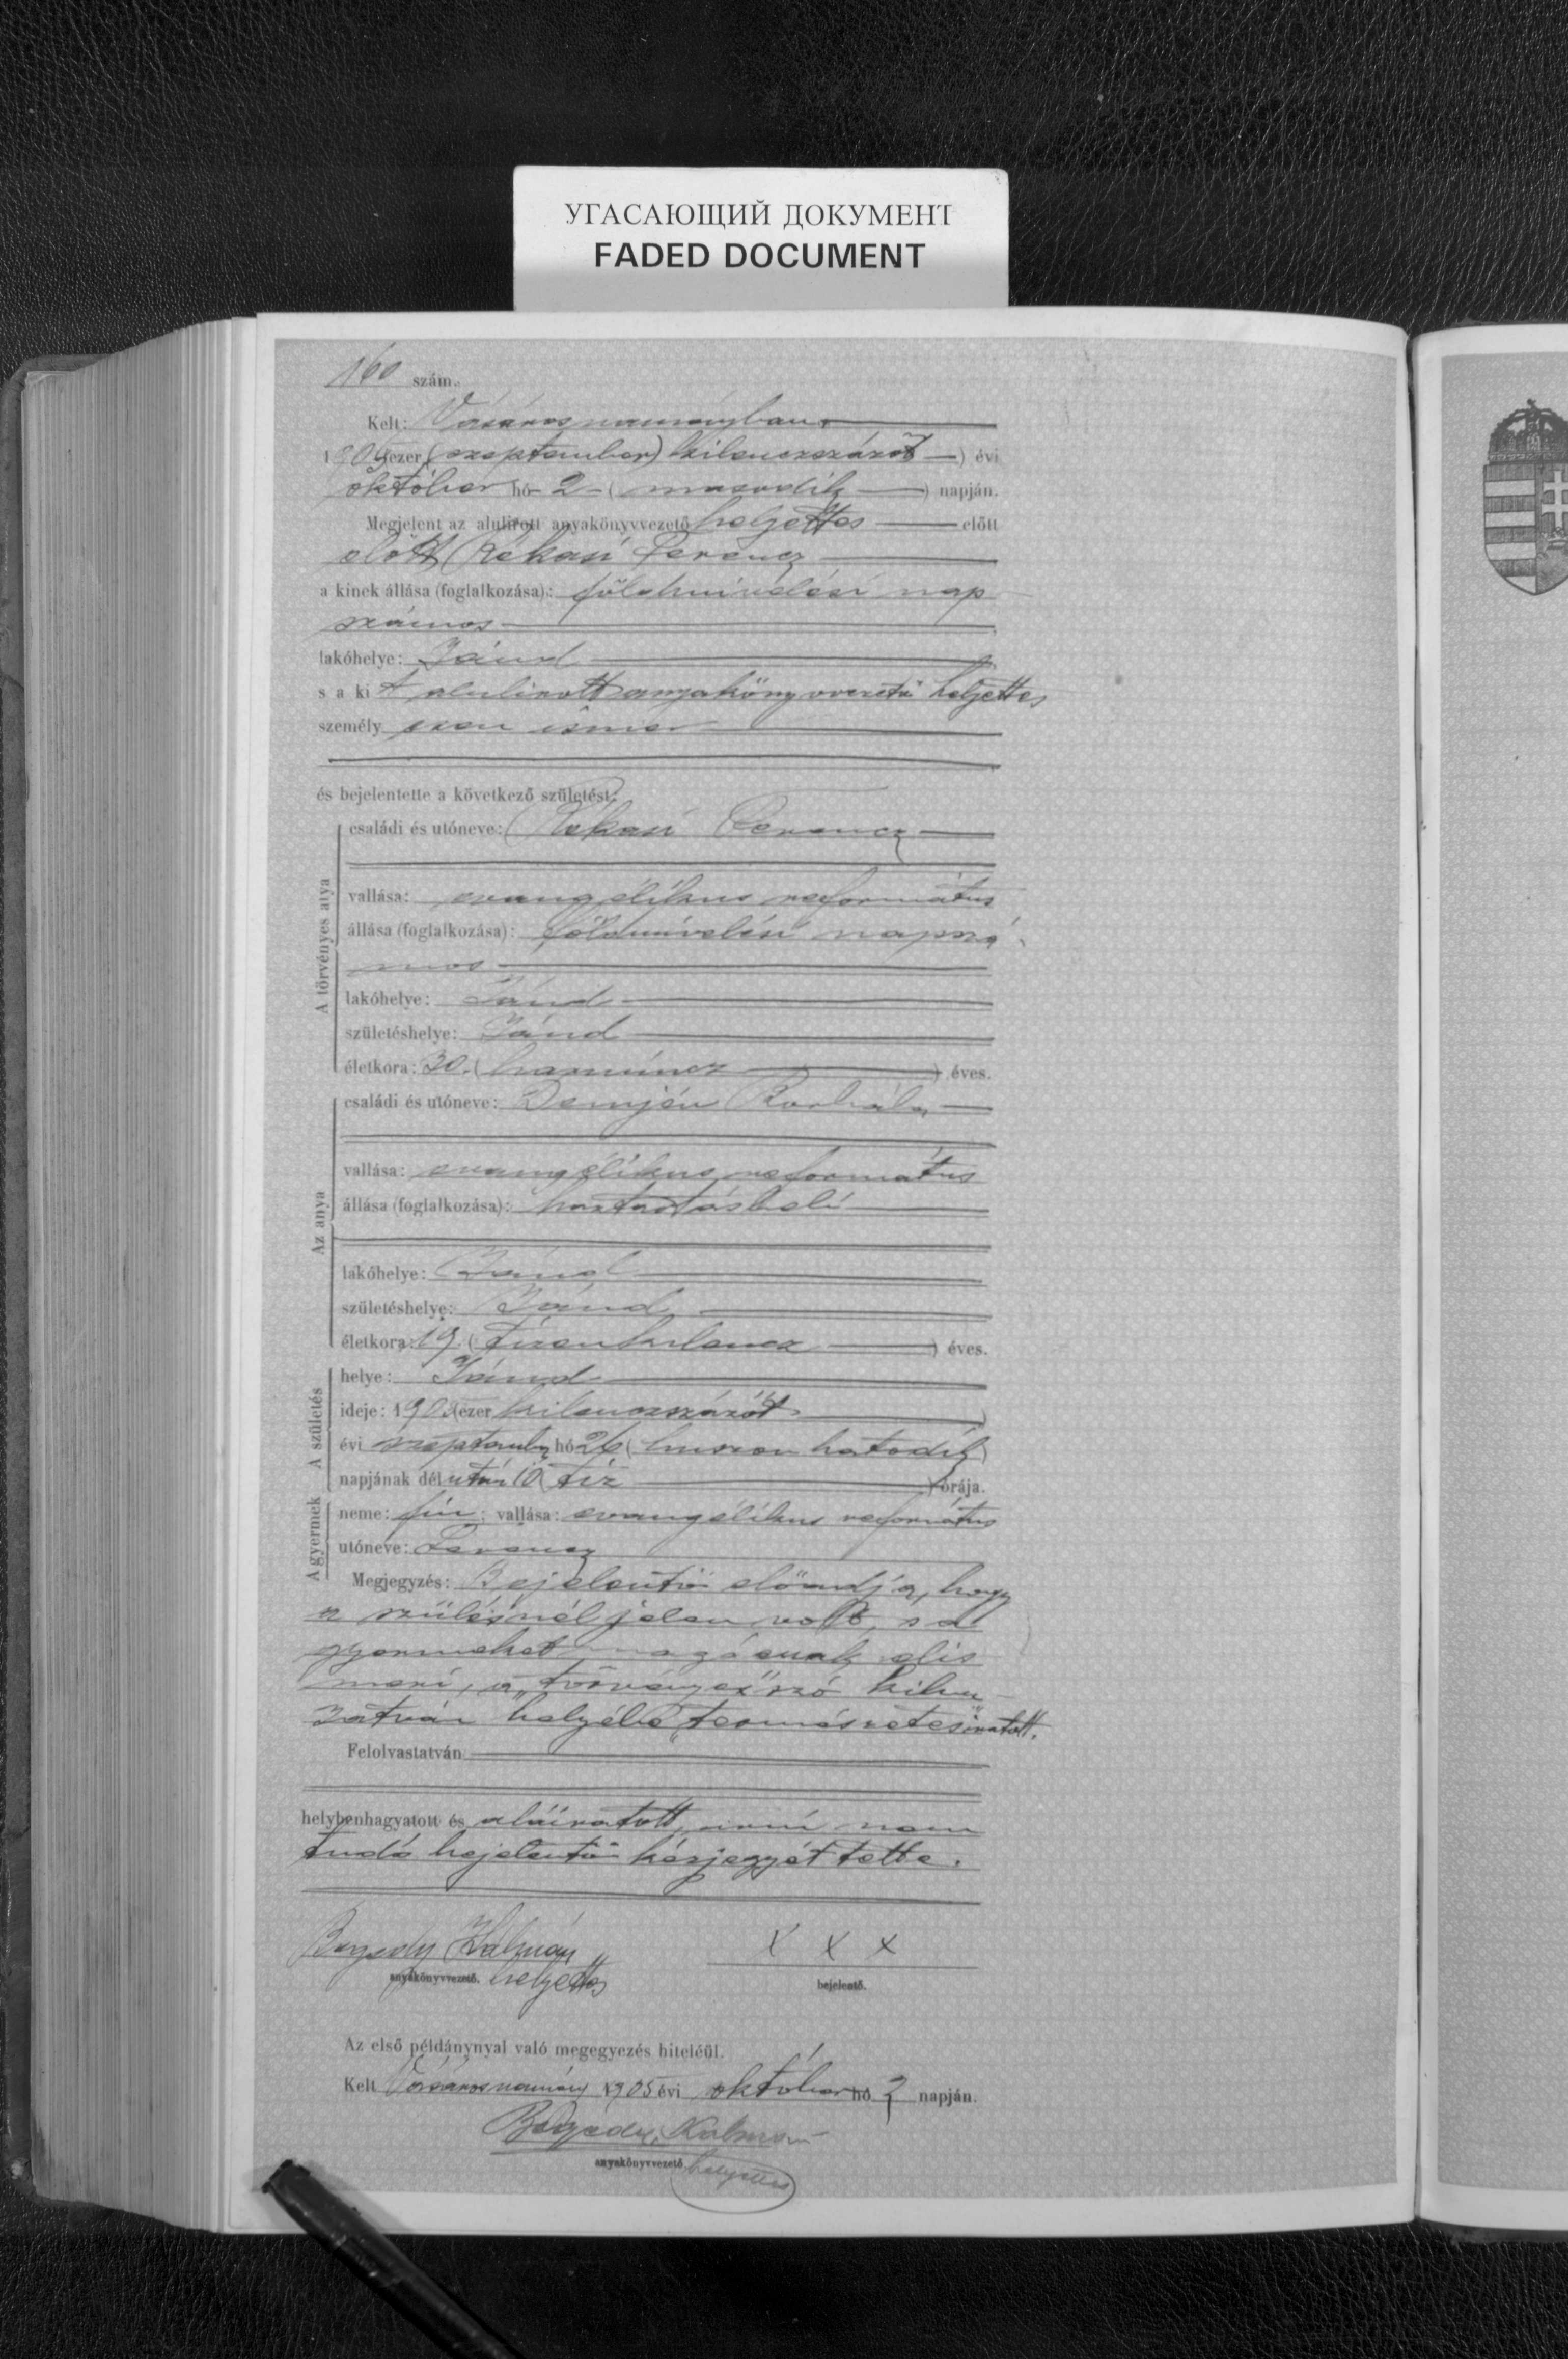 УГАСАЮЩИЙ ДОКУМЕНТ
FADED DOCUMENT
160 szám.
Kelt: Vásárosnaményban
1905 ezer (szeptember) kilenczszázöt évi
október hó 2 (második) napján.
Megjelent az alulirott anyakönyvvezető helyettes előtt
előtt Rékasi Ferencz
a kinek állása (foglalkozása): földmivelési nap
számos
lakóhelye: Jánd
s a kit alulirott anyakönyvvezető helyettes
személyesen ismer
és bejelentette a következő születést:
A törvényes atya
családi és utóneve: Rékasi Ferencz
vallása: evangélikus református
állása (foglalkozása): földmivelési napszá
mos
lakóhelye: Jánd
születéshelye: Jánd
életkora: 30 (harmincz) éves.
Az anya
családi és utóneve: Demjén Borbála
vallása: evangélikus református
állása (foglalkozása): háztartásbeli
lakóhelye: Jánd
születéshelye: Jánd
életkora: 19 (tizenkilencz) éves.
A születés
helye: Jánd
ideje: 1905 (ezer kilenczszázöt)
évi szeptember hó 26 (huszonhatodik)
napjának délután 10 (tiz) órája.
A gyermek
neme: fiu; vallása: evangélikus református
utóneve: Ferencz
Megjegyzés: Bejelentő előadja, hogy
a szülésnél jelen volt, s a
gyermeket magáénak elis
meri, a „törvényes" szó kihu
zatván helyébe „természetes" iratott.
Felolvastatván
helybenhagyatott és aláiratott, irni nem
tudó bejelentő kézjegyét tette.
Kálmán X X X
anyakönyvvezető. helyettes bejelentő.
Az első példánynyal való megegyezés hiteléül.
Kelt Vásárosnamény 1905 évi október hó 2 napján.
Kálmán
anyakönyvvezető helyettes